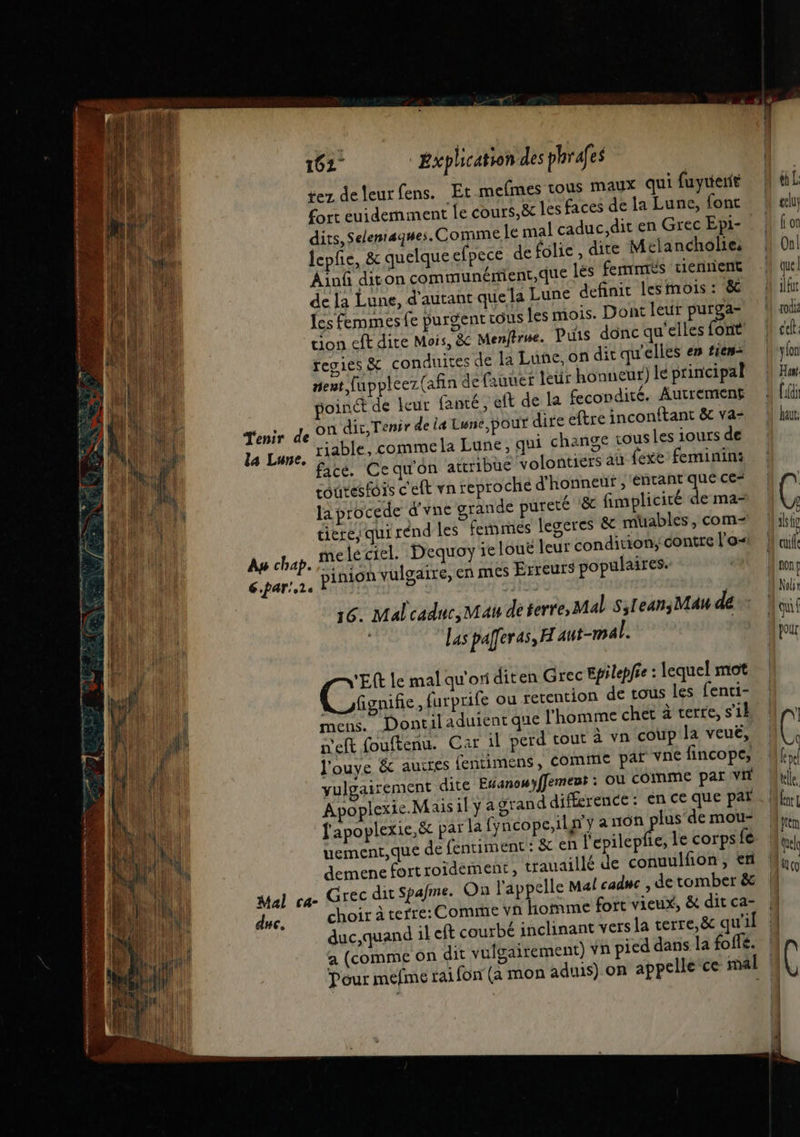 162 Explication des phrases
rez de leur sens. Et mesmes tous maux qui suyuent
fort euidemment le cours, & les faces de la Lune, sont
dits, Seleniaques. Comme le mal caduc, dit en Grec Epi-
lepsie, & quelque espece de folie, dite Melancholie.
Ainsi dit on communément, que les femmes tiennent
de la Lune, d'autant que la Lune definit les mois: &
les femmes se purgent tous les mois. Dont leur purga-
tion est dite Mois, & Menstrue. Puis donc qu'elles sont
regies & conduites de la Lune, on dit qu'elles en tien-
nent, suppleez (afin de sauuer leur honneur) le principal
poinct de leur santé, est de la fecondité. Autrement
Tenir de la Lune.
on dit, Tenir de la Lune, pour dire estre inconstant & va-
riable, comme la Lune, qui change tous les iours de
face. Ce qu'on attribue volontiers au sexe feminin:
toutesfois c'est vn reproche d'honneur, entant que ce-
la procede d'vne grande pureté & simplicité de ma-
tiere, qui rend les femmes legeres & muables, com-
me le ciel. Dequoy ie louë leur condition, contre l'o-
Au chap. 6. par. 2.
pinion vulgaire, en mes Erreurs populaires.
16. Mal caduc, Mau de terre, Mal S. Iean, Mau de
las passeras, Haut-mal.
C'Est le mal qu'on dit en Grec Epilepsie: lequel mot
signifie, surprise ou retention de tous les senti-
mens. Dont il aduient que l'homme chet à terre, s'il
n'est soustenu. Car il perd tout à vn coup la veuë,
l'ouye & autres sentimens, comme par vne sincope,
vulgairement dite Euanouyssement: ou comme par vn
Apoplexie. Mais il y a grand difference: en ce que par
l'apoplexie, & par la syncope, il n'y a non plus de mou-
uement, que de sentiment: & en l'epilepsie, le corps se
demene fort roidement, trauaillé de conuulsion, en
Mal ca-duc.
Grec dit Spasme. On l'appelle Mal caduc, de tomber &
choir à terre: Comme vn homme fort vieux, & dit ca-
duc, quand il est courbé inclinant vers la terre, & qu'il
a (comme on dit vulgairement) vn pied dans la fosse.
Pour mesme raison (à mon aduis) on appelle ce mal